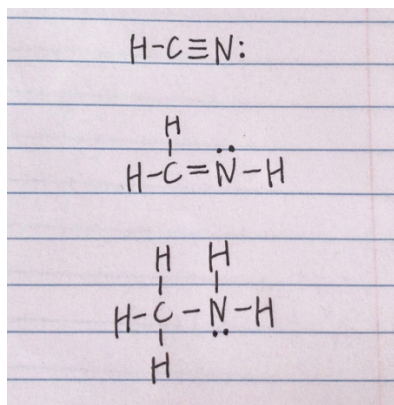 H-C≡N:
H
H-C=N̈-H
H H
H-C-N-H
H ̈